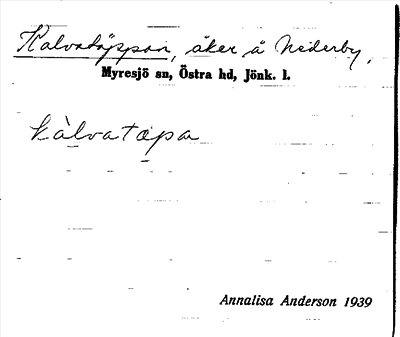 Kalvatäppan, åker å Nederby,
Myresjö sn, Östra hd, Jönk. l.
kàlvatæpa
Annalisa Anderson 1939